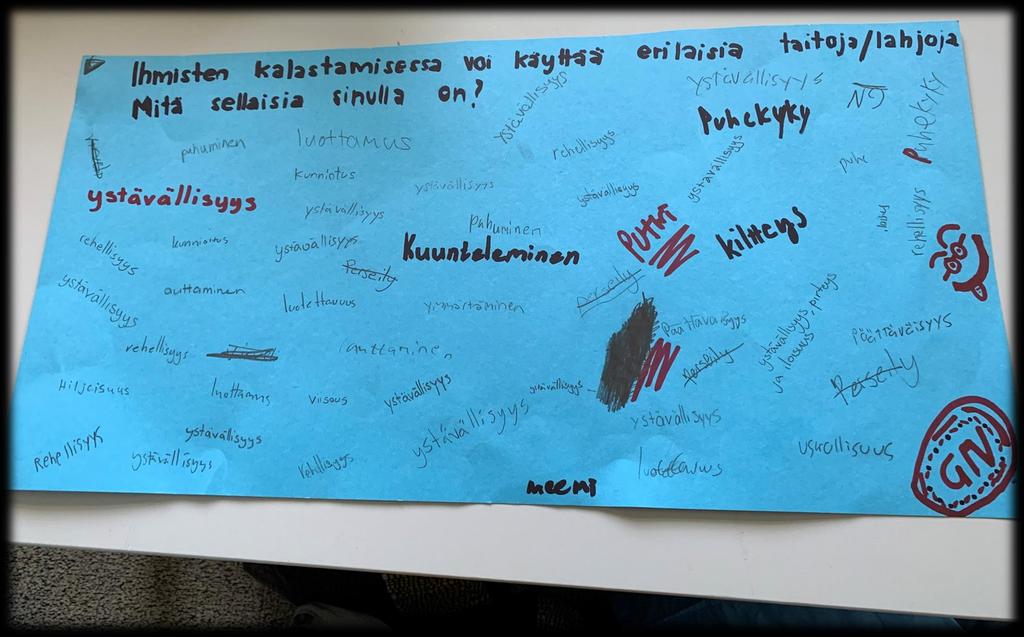 Ihmisten kalastamisessa voi käyttää erilaisia taitoja/lahjoja
Mitä sellaisia sinulla on?
ystävällisyys
ystävällisyys
GN
Puhekyky
Puhekyky
puhuminen
luottamus
rehellisyys
ystävällisyys
puhe
kunniotus
ystävällisyys
ystävällisyys
ystävällisyys
ystävällisyys
puhuminen
PUTKI
kiltteys
rehellisyys
rehellisyys
kunniotus
ystävällisyys
Kuunteleminen
Perseily
perseily
ystävällisyys
auttaminen
luotettavuus
ymmärtäminen
Päättäväisyys
ystävällisyys, pirteys
ja iloisuus
Päättäväisyys
rehellisyys
auttaminen
perseily
Perseily
Hiljaisuus
luottamus
viisaus
ystävällisyys
ystävällisyys
ystävällisyys
ystävällisyys
Rehellisyys
ystävällisyys
ystävällisyys
rehellisyys
luotettavuus
uskollisuus
meemi
GN